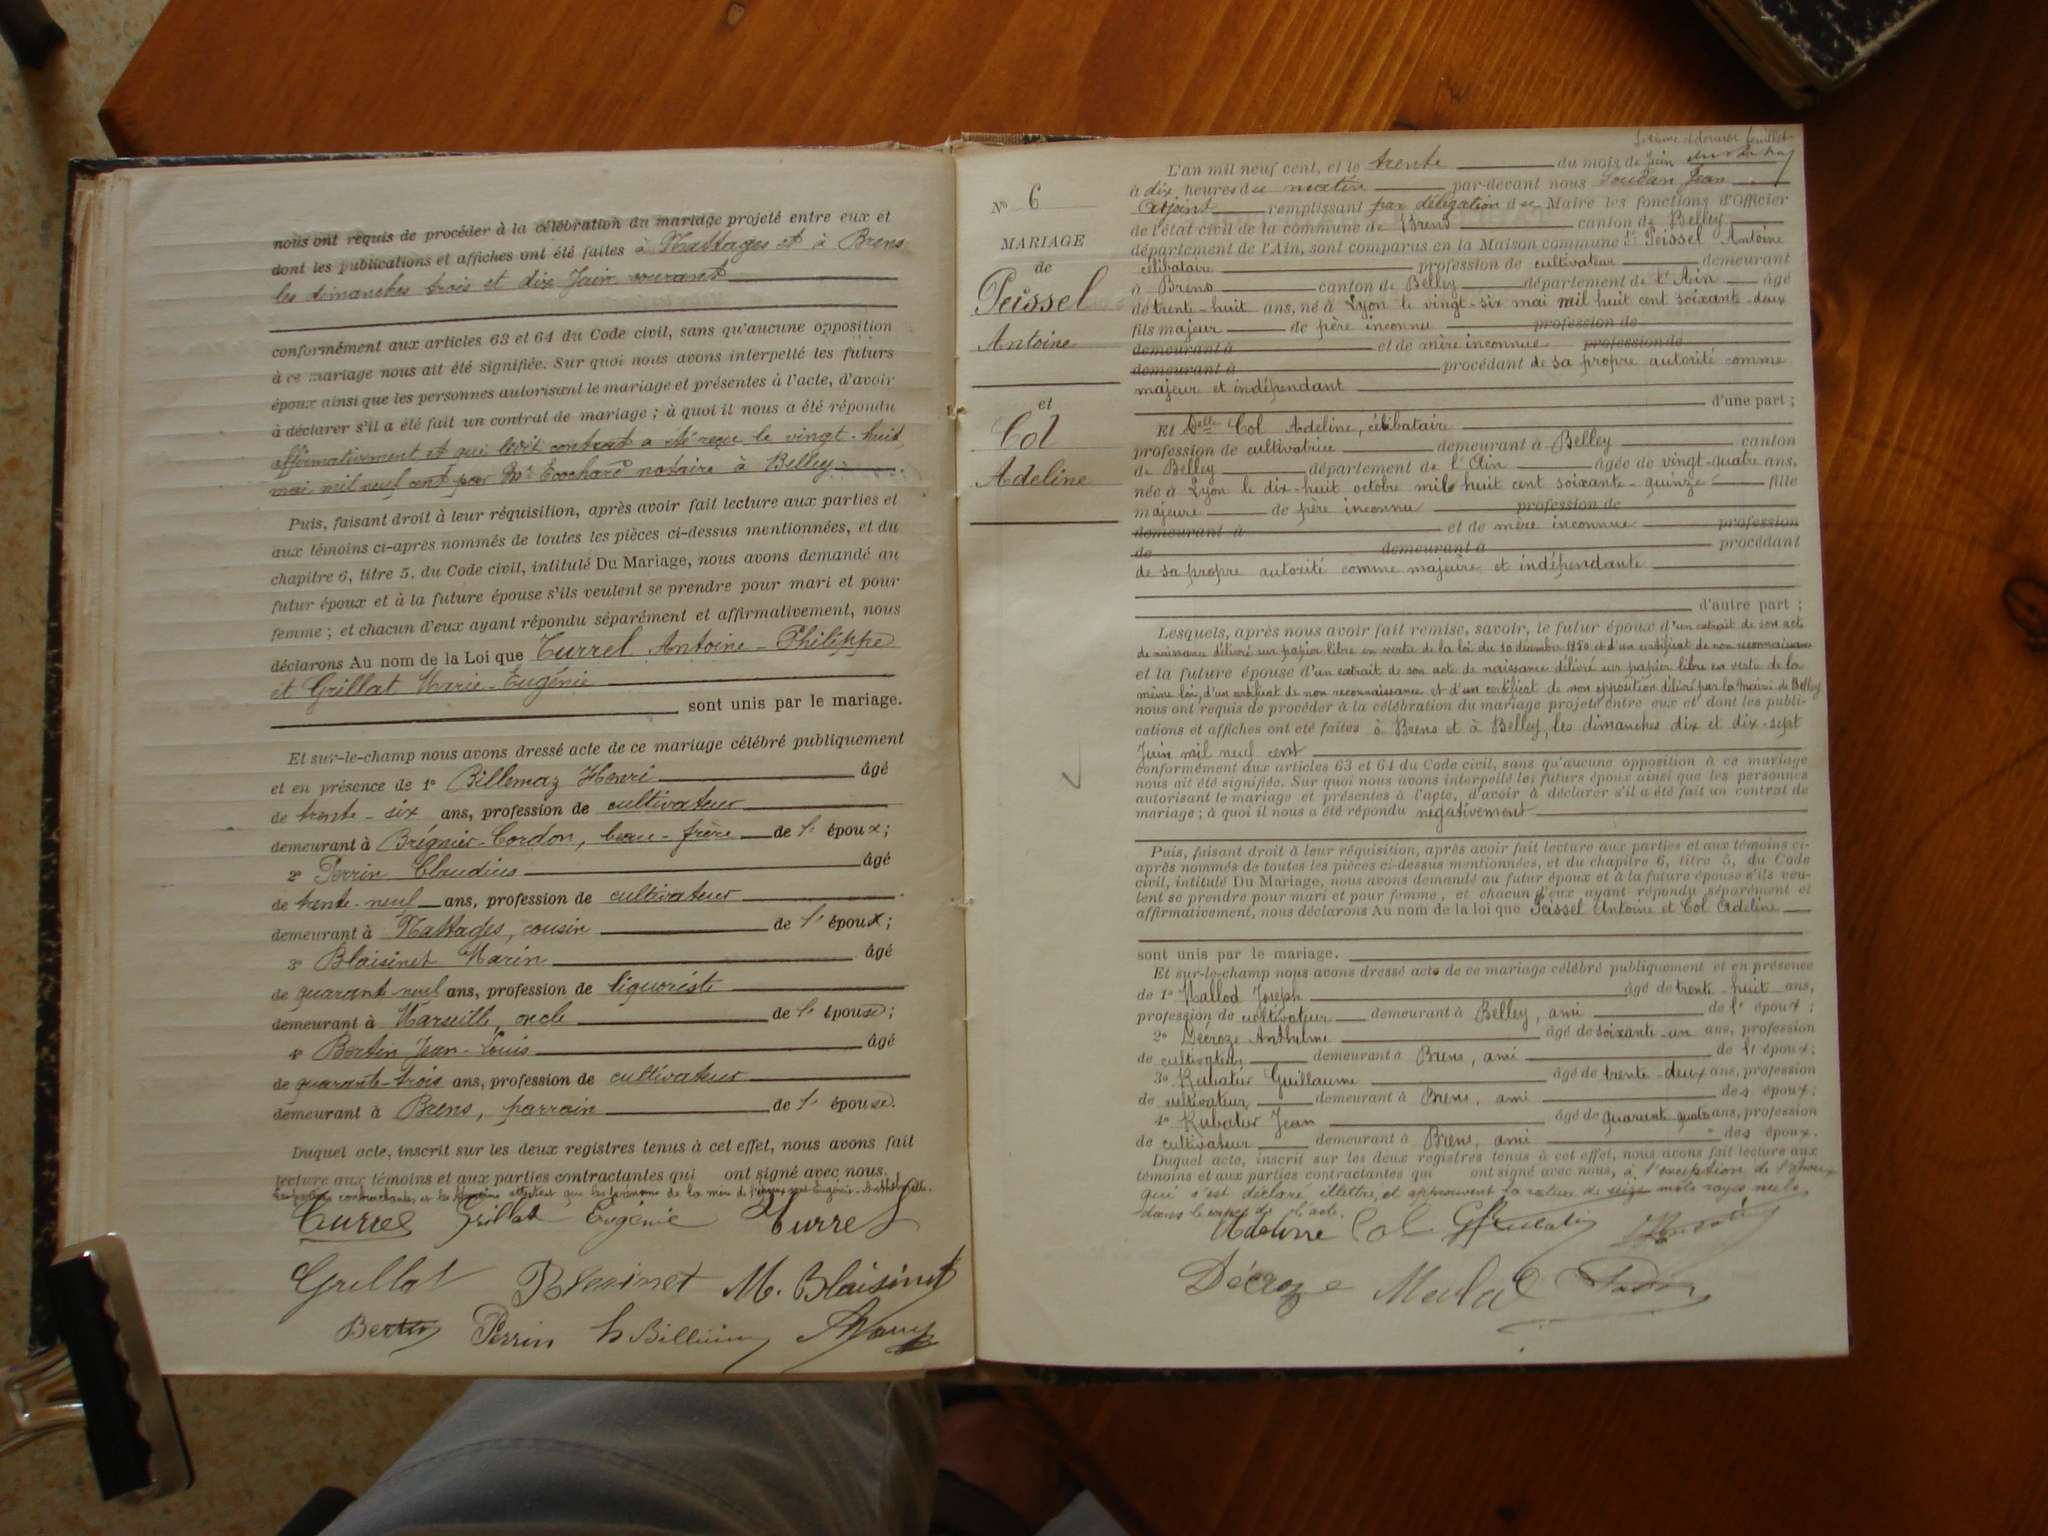 nous ont requis de procéder à la célébration du mariage projeté entre eux et
dont les publications et affiches ont été faites à Nattages et à Brens
les dimanches trois et dix Juin courant
conformément aux articles 63 et 64 du Code civil, sans qu'aucune opposition
à ce mariage nous ait été signifiée. Sur quoi nous avons interpellé les futurs
époux ainsi que les personnes autorisant le mariage et présentes à l'acte, d'avoir
à déclarer s'il a été fait un contrat de mariage ; à quoi il nous a été répondu
affirmativement et que ledit contrat a été reçu le vingt-huit
mai mil neuf cent par Me Ecochard notaire à Belley
Puis, faisant droit à leur réquisition, après avoir fait lecture aux parties et
aux témoins ci-après nommés de toutes les pièces ci-dessus mentionnées, et du
chapitre 6, titre 5, du Code civil, intitulé Du Mariage, nous avons demandé au
futur époux et à la future épouse s'ils veulent se prendre pour mari et pour
femme ; et chacun d'eux ayant répondu séparément et affirmativement, nous
déclarons Au nom de la Loi que Turrel Antoine-Philippe
et Grillat Marie-Eugénie
sont unis par le mariage.
Et sur-le-champ nous avons dressé acte de ce mariage célébré publiquement
et en présence de 1° Billemaz Henri âgé
de trente-six ans, profession de cultivateur
demeurant à Brégnier-Cordon, beau-frère de l' époux;
2° Perrin Claudius âgé
de trente-neuf ans, profession de cultivateur
demeurant à Nattages, cousin de l' époux;
3° Blaisinet Marin âgé
de quarante-neuf ans, profession de liquoriste
demeurant à Marseille, oncle de l' épouse;
4° Bertin Jean-Louis âgé
de quarante-trois ans, profession de cultivateur
demeurant à Brens, parrain de l' épouse.
Duquel acte, inscrit sur les deux registres tenus à cet effet, nous avons fait
lecture aux témoins et aux parties contractantes qui ont signé avec nous.
Turrel Grillat Eugénie Turrel
Grillat Blaisinet M. Blaisinet
Bertin Perrin h Billemaz
N° 6
MARIAGE
de
Peissel
Antoine
et
Col
Adeline
et dernier feuillet
L'an mil neuf cent, et le trente du mois de Juin
à dix heures du matin par-devant nous Soudan Jean
Adjoint remplissant par délégation du Maire les fonctions d'Officier
de l'état civil de la commune de Brens canton de Belley
département de l'Ain, sont comparus en la Maison commune Sr Peissel Antoine
célibataire profession de cultivateur demeurant
à Brens canton de Belley département de l'Ain âgé
de trente-huit ans, né à Lyon le vingt-six mai mil huit cent soixante-deux
fils majeur de père inconnu profession de
demeurant à et de mère inconnue profession de
demeurant à procédant de sa propre autorité comme
majeur et indépendant
d'une part ;
Et Delle Col Adeline, célibataire
profession de cultivatrice demeurant à Belley canton
de Belley département de l'Ain âgée de vingt-quatre ans,
née à Lyon le dix-huit octobre mil huit cent soixante-quinze fille
majeure de père inconnu profession de
demeurant à et de mère inconnue profession
de demeurant à procédant
de sa propre autorité comme majeure et indépendante
d'autre part ;
Lesquels, après nous avoir fait remise, savoir, le futur époux d'un extrait de son acte
de naissance délivré sur papier libre en vertu de la loi du 10 décembre 1850 et d'un certificat de non reconnaissance
et la future épouse d'un extrait de son acte de naissance délivré sur papier libre en vertu de la
même loi, d'un certificat de non reconnaissance et d'un certificat de non opposition délivré par la Mairie de Belley
nous ont requis de procéder à la célébration du mariage projeté entre eux et dont les publi-
cations et affiches ont été faites à Brens et à Belley, les dimanches dix et dix-sept
Juin mil neuf cent
conformément aux articles 63 et 64 du Code civil, sans qu'aucune opposition à ce mariage
nous ait été signifiée. Sur quoi nous avons interpellé les futurs époux ainsi que les personnes
autorisant le mariage et présentes à l'acte, d'avoir à déclarer s'il a été fait un contrat de
mariage ; à quoi il nous a été répondu négativement
Puis, faisant droit à leur réquisition, après avoir fait lecture aux parties et aux témoins ci-
après nommés de toutes les pièces ci-dessus mentionnées, et du chapitre 6, titre 5, du Code
civil, intitulé Du Mariage, nous avons demandé au futur époux et à la future épouse s'ils veu-
lent se prendre pour mari et pour femme, et chacun d'eux ayant répondu séparément et
affirmativement, nous déclarons Au nom de la loi que Peissel Antoine et Col Adeline
sont unis par le mariage.
Et sur-le-champ nous avons dressé acte de ce mariage célébré publiquement et en présence
de 1° Mallod Joseph âgé de trente-huit ans,
profession de cultivateur demeurant à Belley, ami de l' époux ;
2° Décroze Anthelme âgé de soixante-un ans, profession
de cultivateur demeurant à Brens, ami de l' époux;
3° Rubatier Guillaume âgé de trente-deux ans, profession
de cultivateur demeurant à Brens, ami des époux;
4° Rubatier Jean âgé de quarante-quatre ans, profession
de cultivateur demeurant à Brens, ami des époux.
Duquel acte, inscrit sur les deux registres tenus à cet effet, nous avons fait lecture aux
témoins et aux parties contractantes qui ont signé avec nous, à l'exception de l'époux
qui s'est déclaré illettré, et approuvent la rature de seize mots rayés nuls
dans le corps de l'acte.
Adeline Col
Décroze